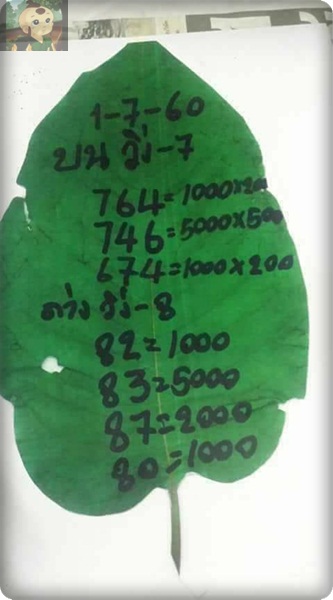 1-7-60
บน วิ่ง-7
764=1000×200
746=5000×500
674=1000×200
ล่าง วิ่ง-8
82=1000
83=5000
87=2000
80=1000